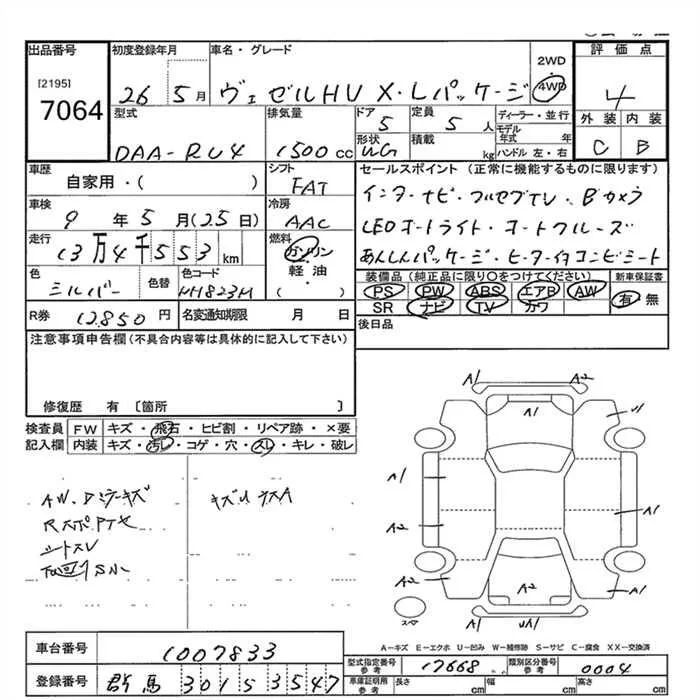 出品番号
[2195]
7064
初度登録年月
26 5月
車名・グレード
ヴェゼルHV X・Lパッケージ
2WD
4WD
評価点
4
外装 内装
C B
型式
DAA-RU4
排気量
1500cc
ドア
5
形状
WG
定員
5人
積載
kg
ディーラー・並行
モデル年式 年
ハンドル 左・右
車歴
自家用・( )
シフト
FAT
セールスポイント(正常に機能するものに限ります)
インターナビ・フルセグTV・Bカメラ
LEDオートライト・オートクルーズ
あんしんパッケージ・ヒーター付コンビシート
車検
9年5月(25日)
冷房
AAC
走行
13万4千553km
燃料
ガソリン
軽油
( )
色
シルバー
色替
色コード
NH823M
装備品(純正品に限り○をつけてください)
PS PW ABS エアB AW
SR ナビ TV カワ
新車保証書
有 無
R券
12850円
名変通知期限
月 日
後日品
注意事項申告欄(不具合内容等は具体的に記入して下さい)
修復歴 有〔箇所 〕
検査員記入欄
FW キズ・飛石・ヒビ割・リペア跡・×要
内装 キズ・汚レ・コゲ・穴・スレ・キレ・破レ
AW.Dミラーキズ
キズU
シートスレ
A1 A2
A1 U1
A1
A1
A2
A2 A2 A1
UA1
スペア
A-キズ E-エクボ U-凹み W-補修跡 S-サビ C-腐食 XX-交換済
車台番号
1007833
登録番号
群馬 301 5 3547
型式指定番号
参考
17668
類別区分番号
参考
0004
車庫証明用
参考
長さ cm
幅 cm
高さ cm